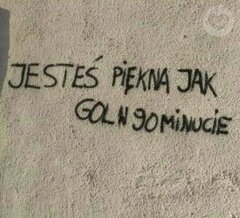 JESTEŚ PIĘKNA JAK
GOL W 90 MINUCIE